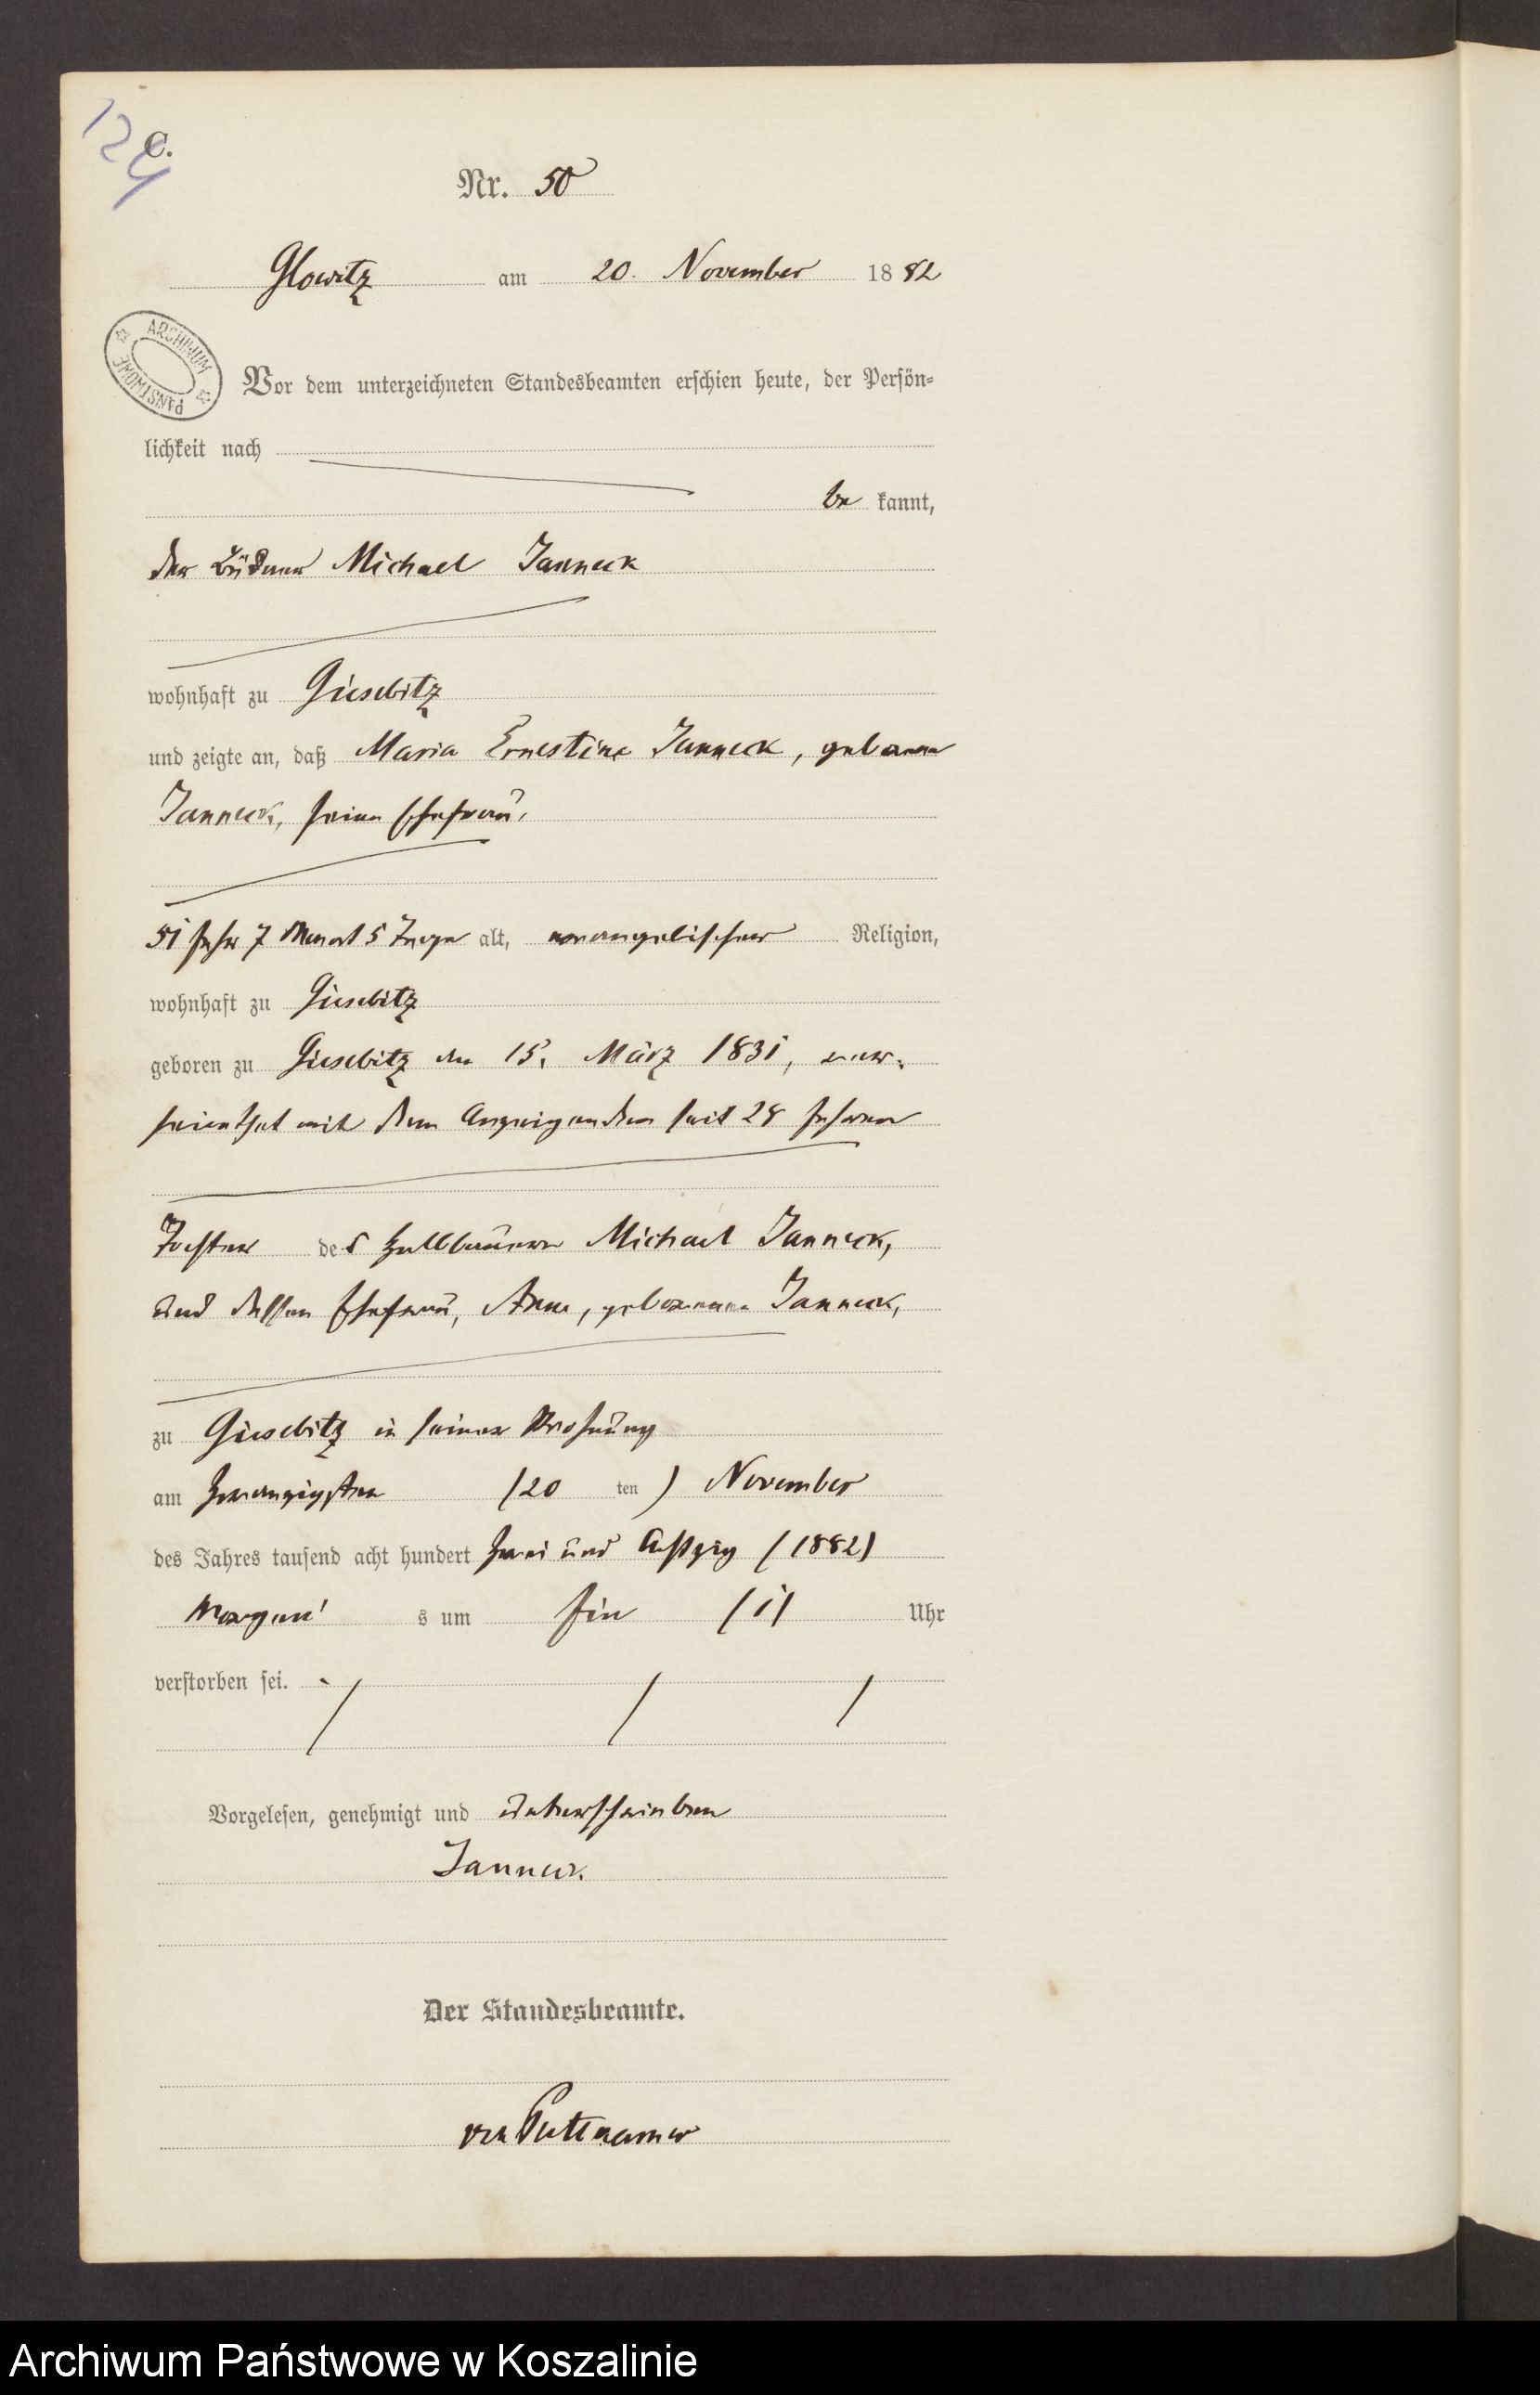 124
C.
Nr. 50
Glowitz am 20. November 1882
ARCHIWUM PAŃSTWOWE
Vor dem unterzeichneten Standesbeamten erschien heute, der Persön-
lichkeit nach
be kannt,
der Büdner Michael Janneck
wohnhaft zu Giesebitz
und zeigte an, daß Maria Ernestine Janneck, geborene
Janneck, seine Ehefrau,
51 Jahr 7 Monat 5 Tage alt, evangelischer Religion,
wohnhaft zu Giesebitz
geboren zu Giesebitz den 15. März 1831, ver-
heirathet mit dem Anzeigenden seit 28 Jahren
Tochter des Halbbauern Michael Janneck,
und dessen Ehefrau, Anne, geborenen Janneck,
zu Giesebitz in seiner Wohnung
am zwanzigsten (20 ten) November
des Jahres tausend acht hundert zwei und achtzig (1882)
Morgen s um Ein (1) Uhr
verstorben sei.
Vorgelesen, genehmigt und unterschrieben
Janneck.
Der Standesbeamte.
von Puttkamer
Archiwum Państwowe w Koszalinie